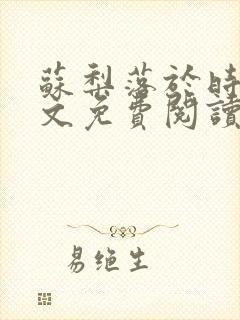 蘇梨落於時
文免費閱讀
易绝生